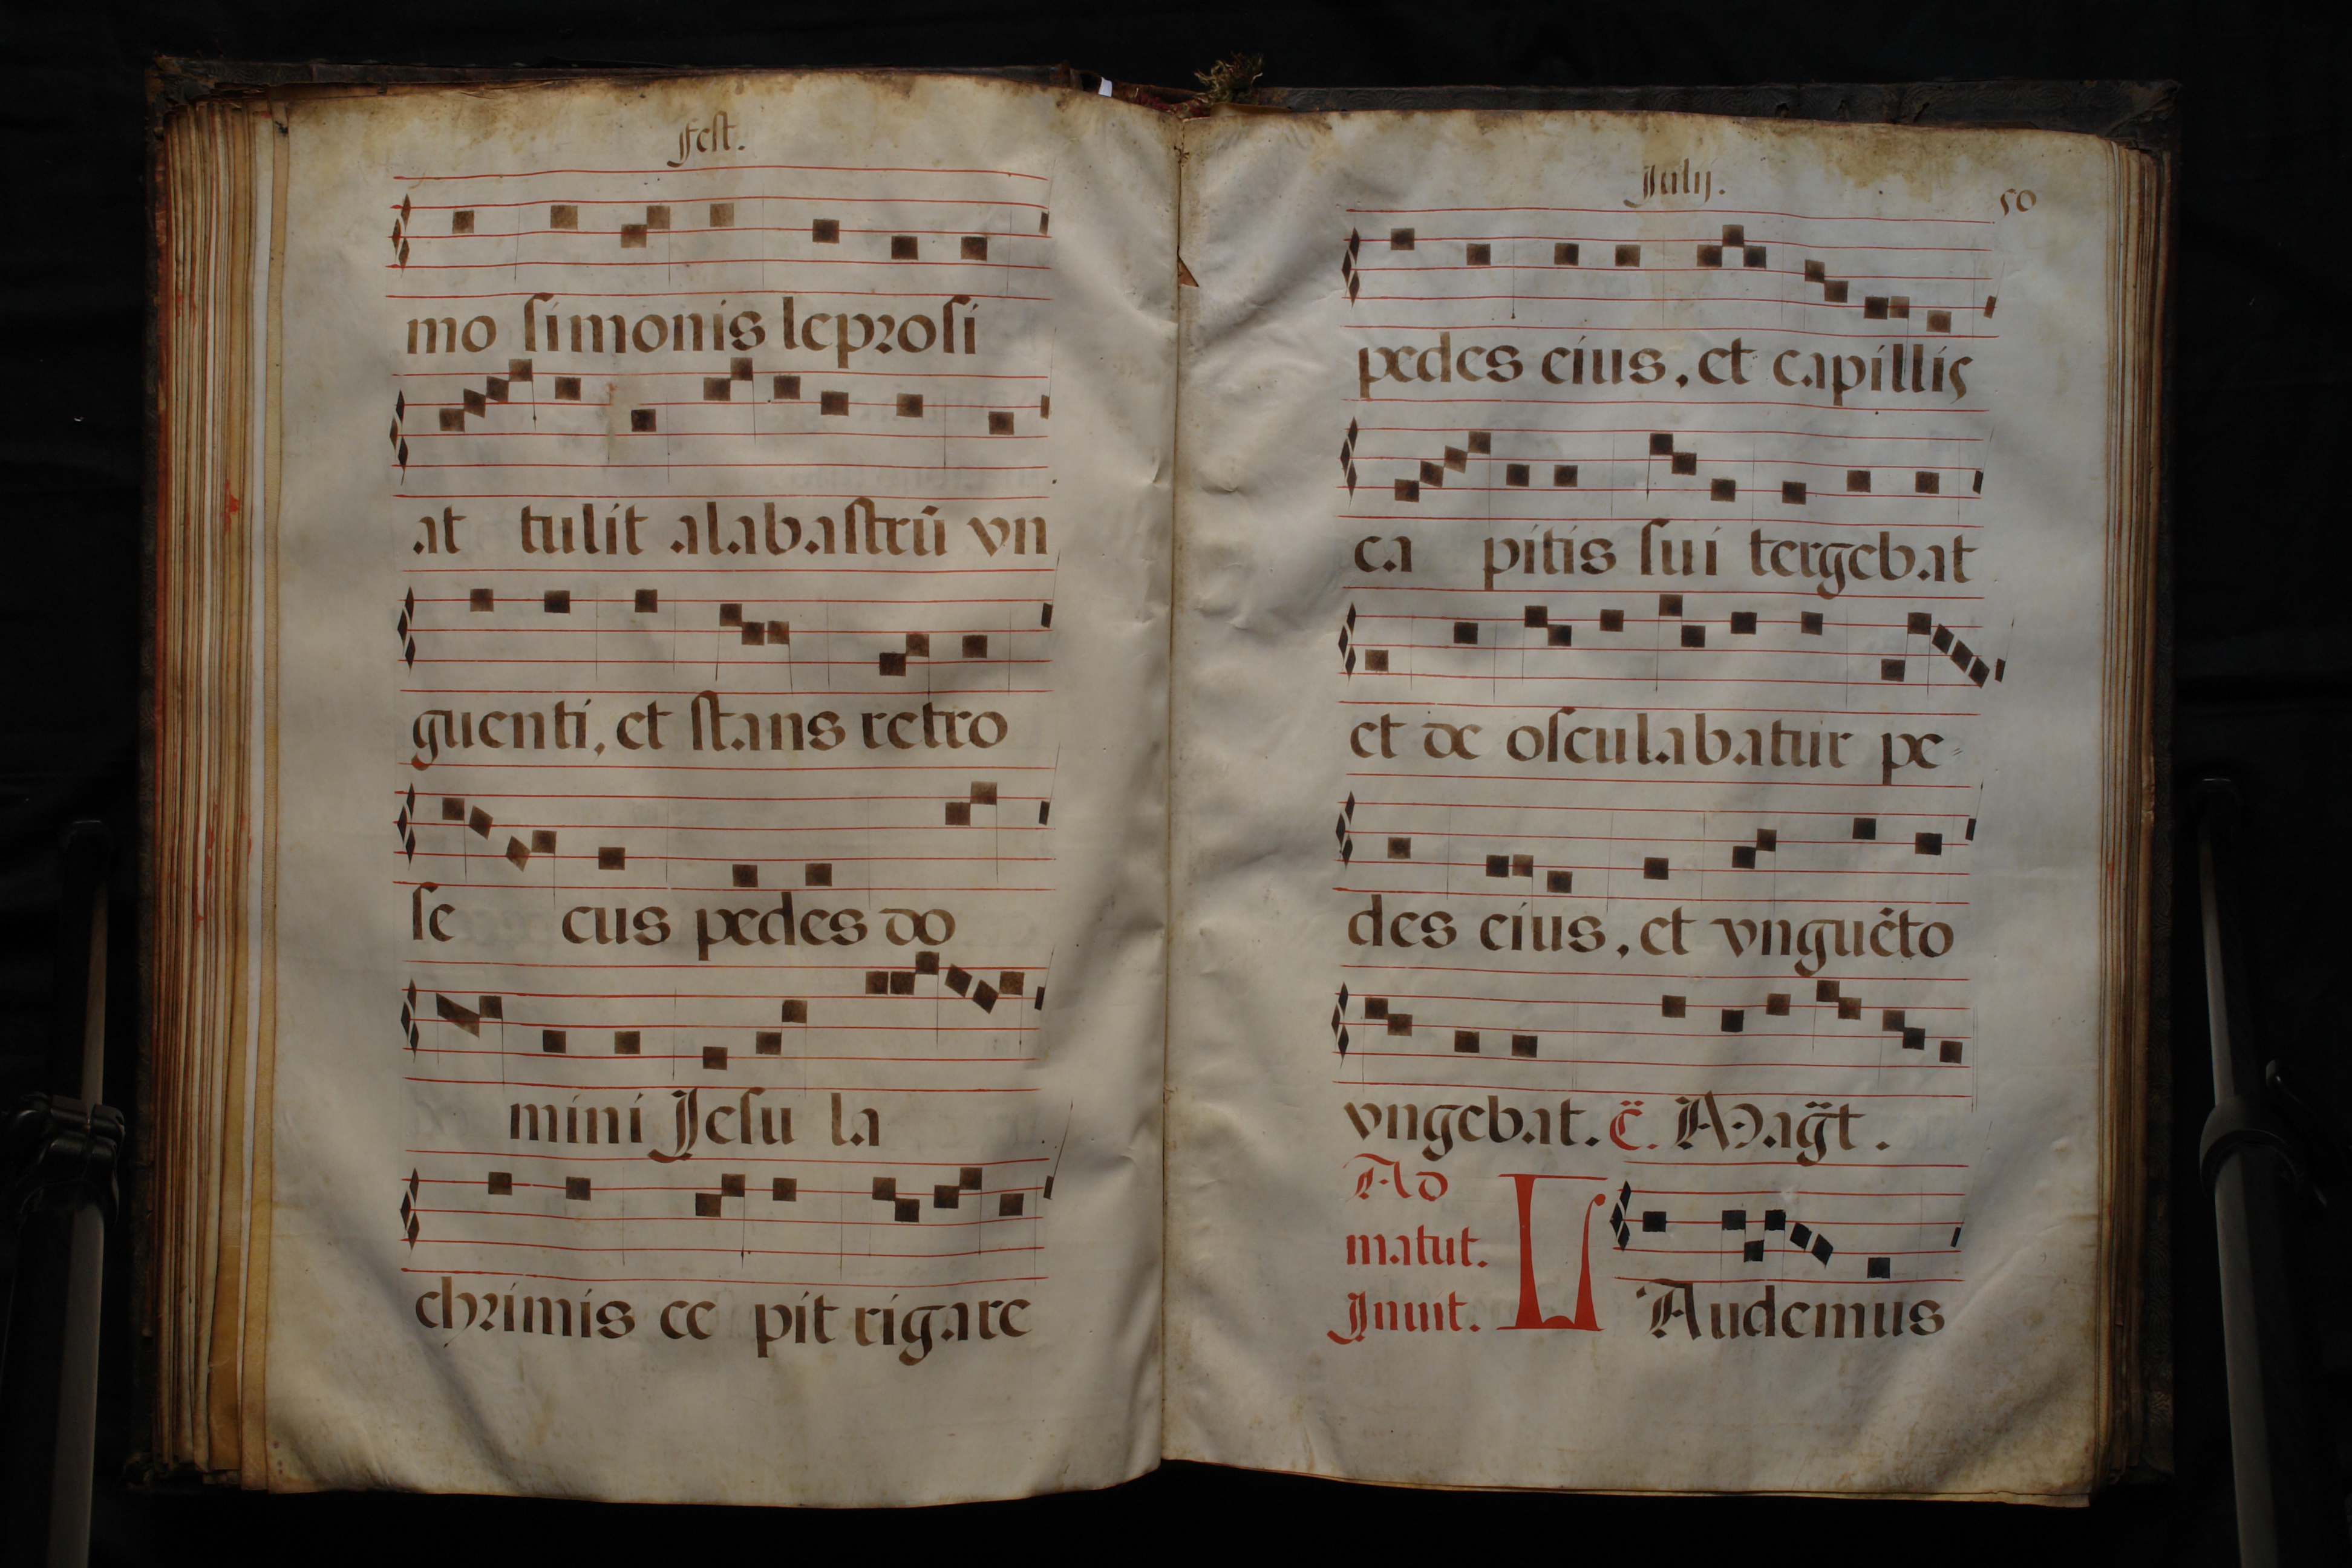 Fest.
mo simonis leprosi
at tulit alabastrū vn
guenti, et stans retro
se cus pedes do
mini Jesu la
chrimis ce pit rigare
Julij.
50
pedes eius, et capillis
ca pitis sui tergebat
et de osculabatur pe=
des eius, et vnguēto
vngebat. c̃. Mag̃t.
Ad
matut.
Inuit.
L Audemus